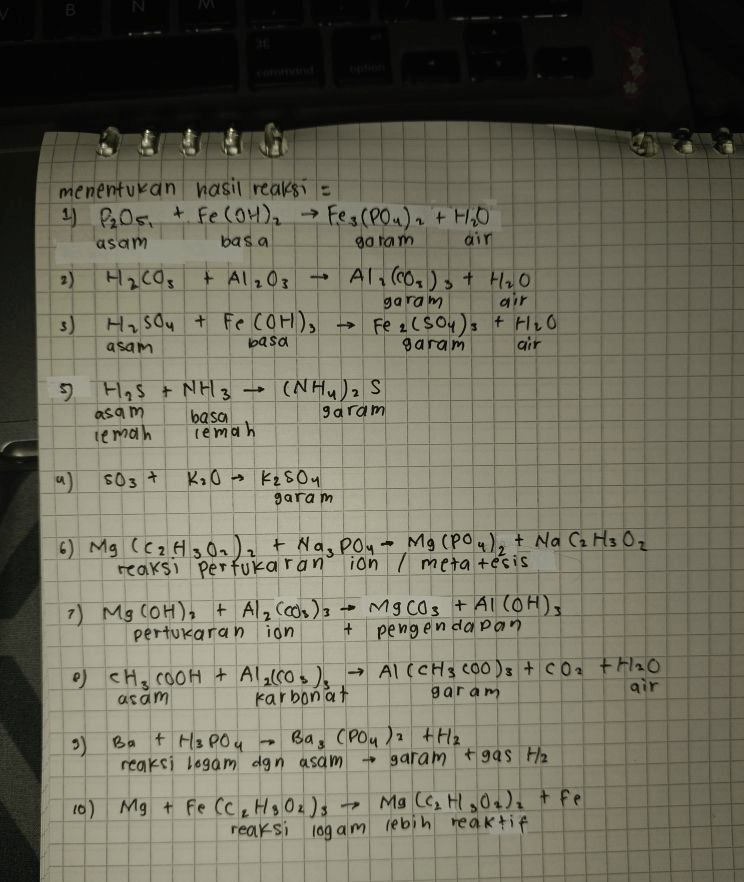 B N M
⌘
command option
menentukan hasil reaksi =
1) P₂O₅, + Fe(OH)₂ → Fe₃(PO₄)₂ + H₂O
asam basa garam air
2) H₂CO₃ + Al₂O₃ → Al₂(CO₃)₃ + H₂O
garam air
3) H₂SO₄ + Fe(OH)₃ → Fe₂(SO₄)₃ + H₂O
asam basa garam air
5) H₂S + NH₃ → (NH₄)₂S
asam basa garam
lemah lemah
4) SO₃ + K₂O → K₂SO₄
garam
6) Mg(C₂H₃O₂)₂ + Na₃PO₄ → Mg(PO₄)₂ + NaC₂H₃O₂
reaksi pertukaran ion / metatesis
7) Mg(OH)₂ + Al₂(CO₃)₃ → MgCO₃ + Al(OH)₃
pertukaran ion + pengendapan
8) CH₃COOH + Al₂(CO₃)₃ → Al(CH₃COO)₃ + CO₂ + H₂O
asam karbonat garam air
9) Ba + H₃PO₄ → Ba₃(PO₄)₂ + H₂
reaksi logam dgn asam → garam + gas H₂
10) Mg + Fe(C₂H₃O₂)₃ → Mg(C₂H₃O₂)₂ + Fe
reaksi logam lebih reaktif